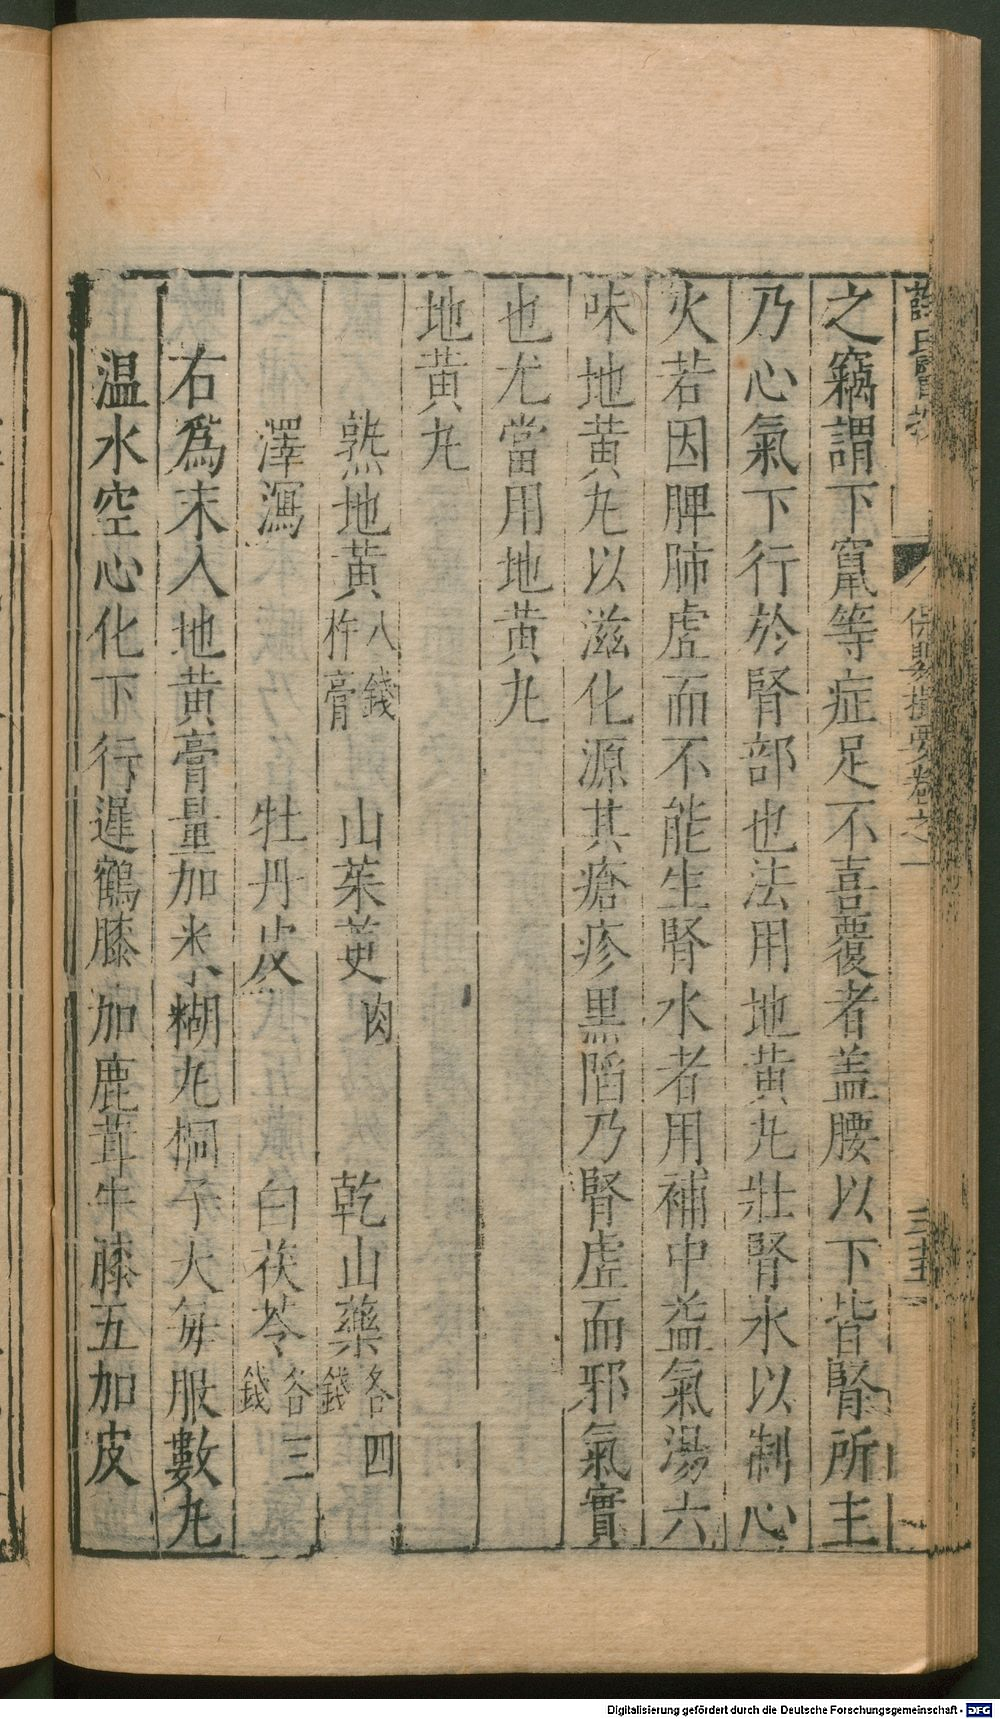 薛氏醫按 保嬰撮要卷之一
之竊謂下竄等症足不喜覆者盖腰以下皆腎所主
乃心氣下行於腎部也法用地黃丸壯腎水以制心
火若因脾肺虛而不能生腎水者用補中益氣湯六
味地黃丸以滋化源其瘡疹黑陷乃腎虛而邪氣實
也尤當用地黃丸
地黃丸
熟地黃八錢杵膏 山茱萸肉 乾山藥各四錢
澤瀉 牡丹皮 白茯苓各三錢
右爲末入地黃膏量加米糊丸桐子大每服數丸
温水空心化下行遲鶴膝加鹿茸牛膝五加皮
Digitalisierung gefördert durch die Deutsche Forschungsgemeinschaft - DFG